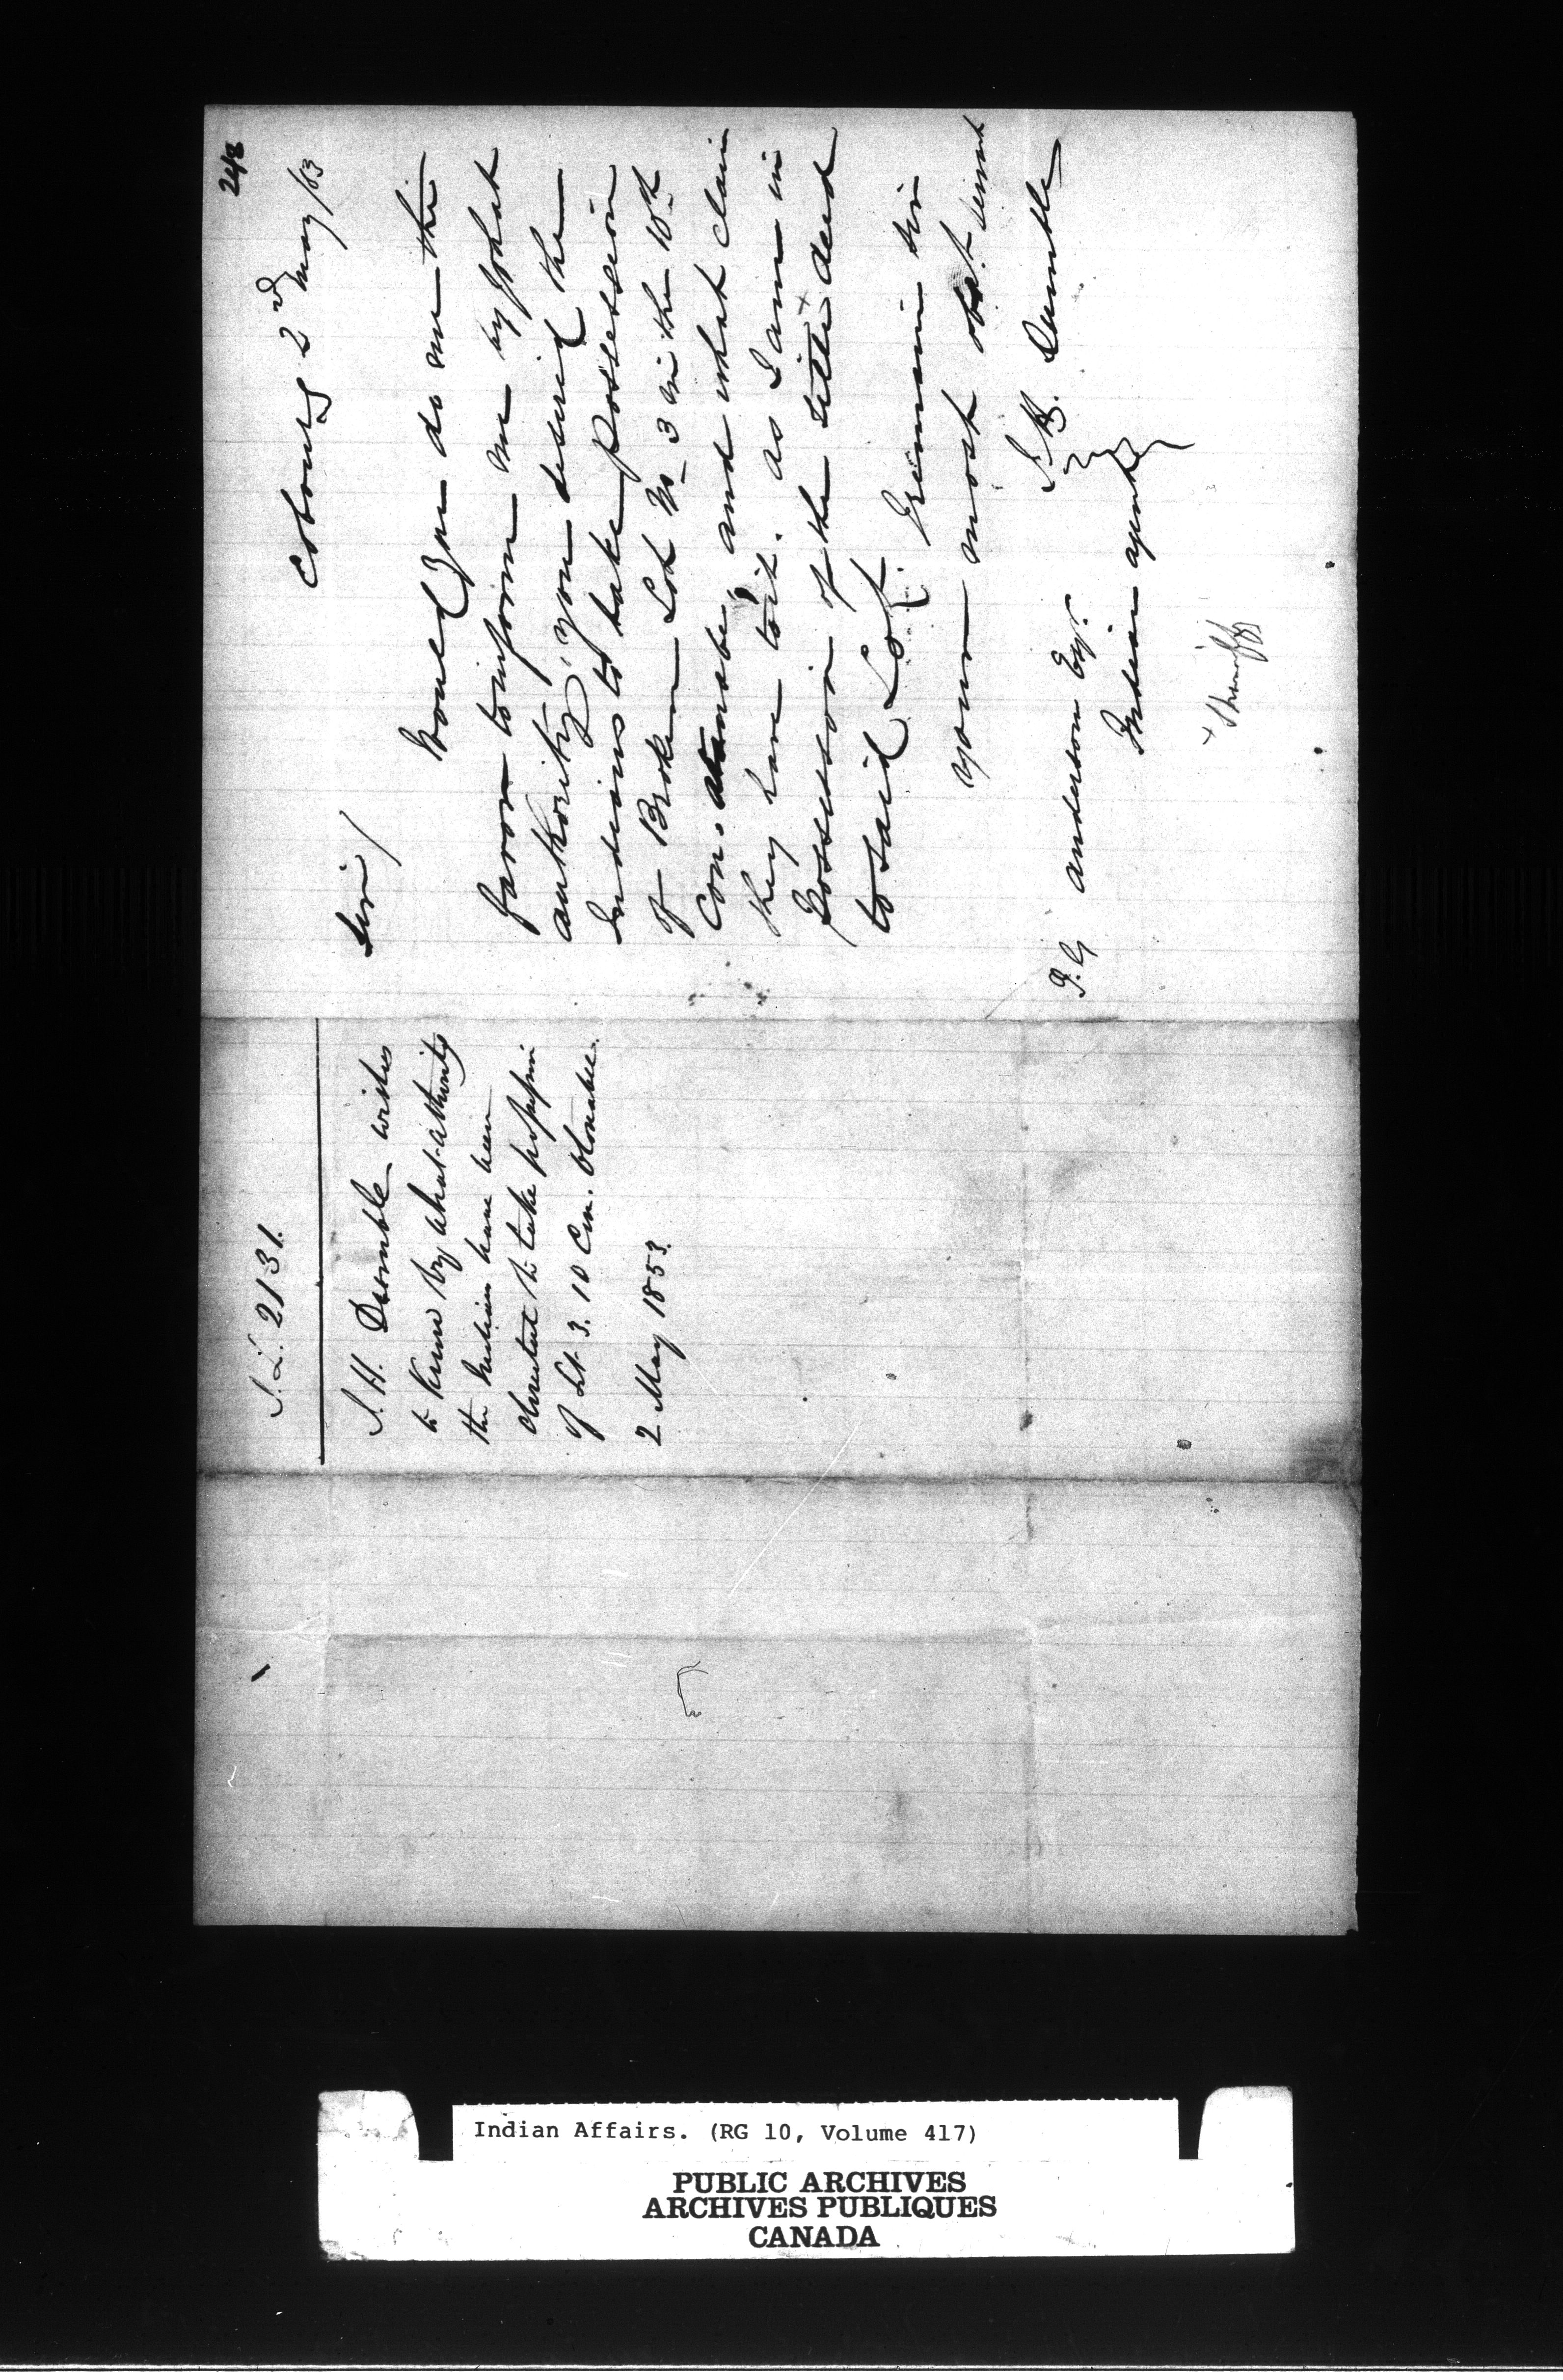 248
Cobourg 2d May/53
Sir/
Would you do me the
favor to inform me by what
authority you desired the
Indians to take possession
of Broken Lot No 3 in the 10th
Con. Otanabe, and what claim
they have to it. as I am in
Possession of the title + deed
to said Lot. I remain Sir
your most obt. servnt
S. H. Dumble
T. G anderson Esqr.
Indian agent
+ Sheriffs
I. L. 2131.
S. H. Dumble wishes
to know by what authority
the Indians have been
directed to take possession
of Lt. 3. 10 Con. Otonabee.
2 May 1853.
Indian Affairs. (RG 10, Volume 417)
PUBLIC ARCHIVES
ARCHIVES PUBLIQUES
CANADA